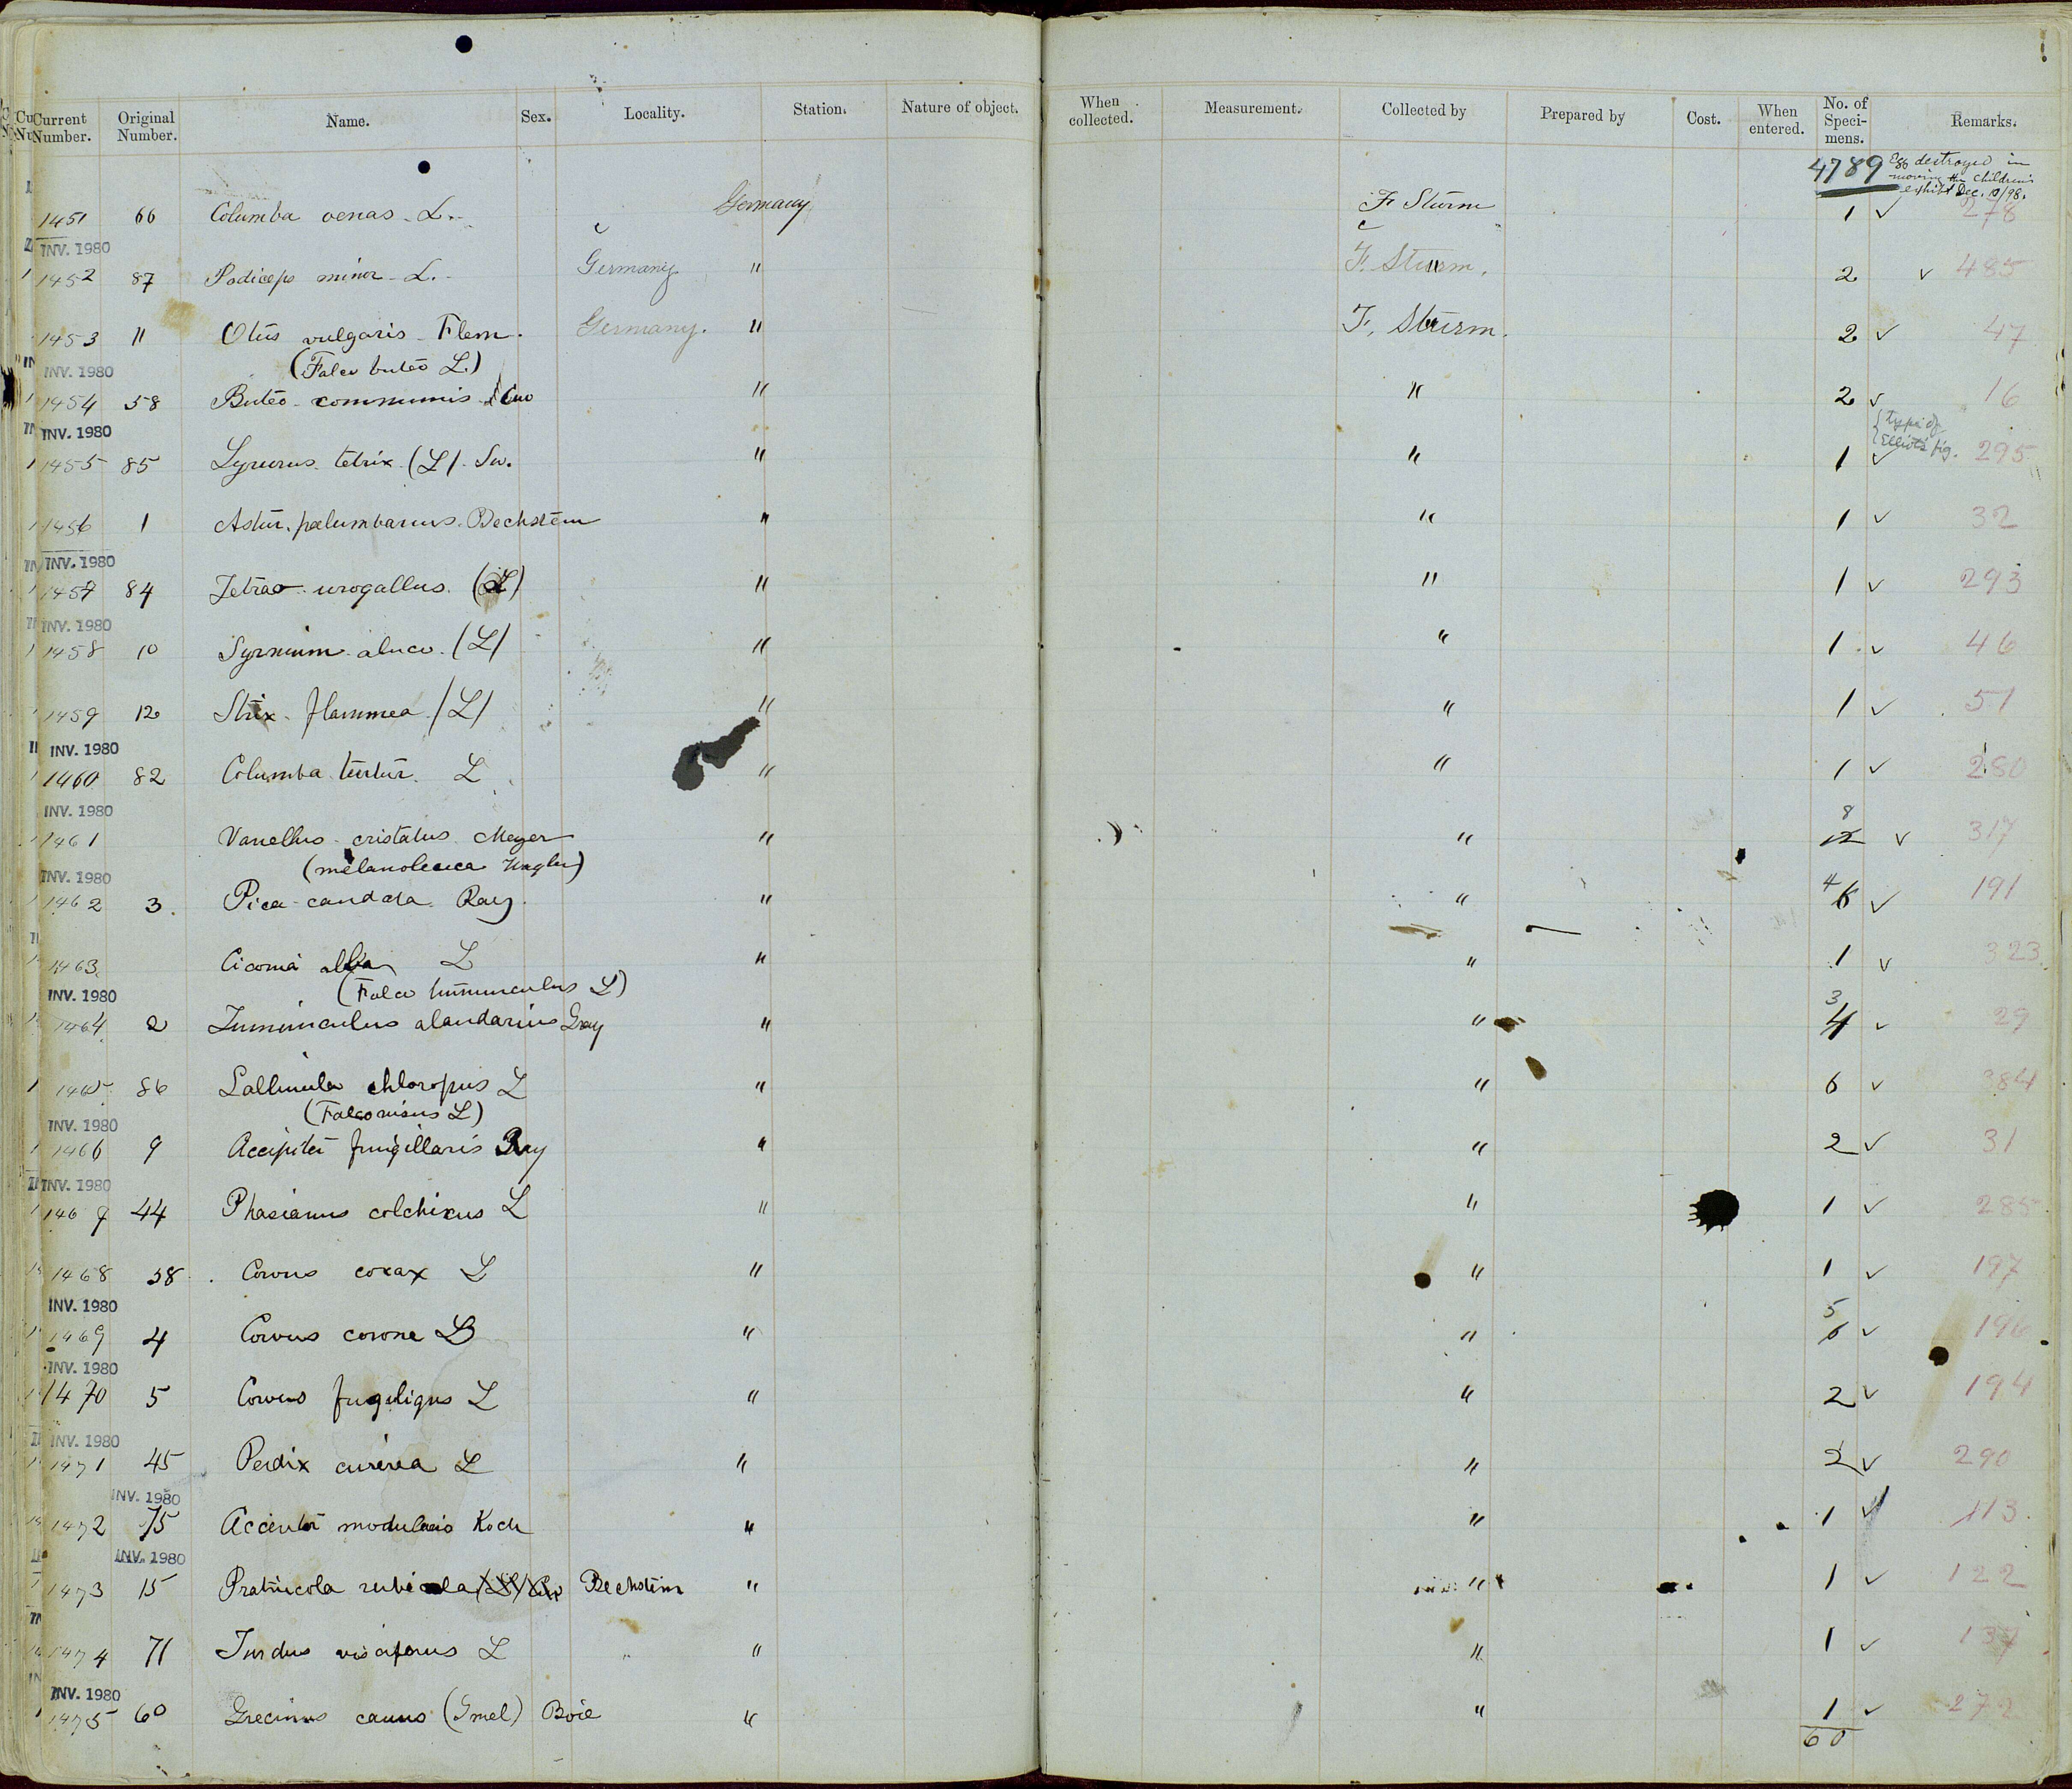 Current Number. Original Number. Name. Sex. Locality. Station. Nature of object. When collected. Measurement. Collected by Prepared by Cost. When entered. No. of Specimens. Remarks.
4789 Egg destroyed in
moving the children's
exhibit Dec. 10/98.
1451 66 Columba oenas - L. Germany F Sturm 1 ✓ 278
INV. 1980
1452 87 Podiceps minor - L. Germany " F. Sturm. " 2 ✓ 485
1453 11 Otus vulgaris - Flem. Germany. " F. Sturm. " 2 ✓ 47
(Falco buteo L.)
INV. 1980
1454 58 Buteo communis Cuv " " 2 ✓ 16
INV. 1980
{type of
Elliot's fig.
1455 85 Lyrurus tetrix (L). Sw. " " 1 ✓ 295
1456 1 Astur. palumbarius. Bechstein " " 1 ✓ 32
INV. 1980
1457 84 Tetrao urogallus. (L) " " 1 ✓ 293
INV. 1980
1458 10 Syrnium aluco. (L) " " 1 ✓ 46
1459 12 Strix flammea (L) " " 1 ✓ 51
INV. 1980
1460 82 Columba turtur. L " " 1 ✓ 280
INV. 1980
8
1461 Vanellus cristatus Meyer " " 12 ✓ 317
(melanoleuca Wagler)
INV. 1980
1462 3. Pica caudata Ray. " " 4 6 ✓ 191
1463 Ciconia alba L " " 1 ✓ 323
(Falco tinnunculus L)
INV. 1980
3
1464 2 Tinnunculus alaudarius Gray " " 4 ✓ 29
1465 86 Gallinula chloropus L " " 6 ✓ 384
(Falco nisus L)
INV. 1980
1466 9 Accipiter fringillaris Ray " " 2 ✓ 31
INV. 1980
1467 44 Phasianus colchicus L " " 1 ✓ 285
1468 58 Corvus corax L " " 1 ✓ 197
INV. 1980
5
1469 4 Corvus corone L " " 6 ✓ 196
INV. 1980
1470 5 Corvus frugiligus L " " 2 ✓ 194
INV. 1980
1471 45 Perdix cinerea L " " 2 ✓ 290
INV. 1980
1472 75 Accentor modularis Koch " " 1 ✓ 113
INV. 1980
1473 15 Pratincola rubicola Bechstein " " 1 ✓ 122
1474 71 Turdus viscivorus L " " 1 ✓ 137
INV. 1980
1475 60 Grecinus canus (Gmel) Boie " " 1 ✓ 272
60